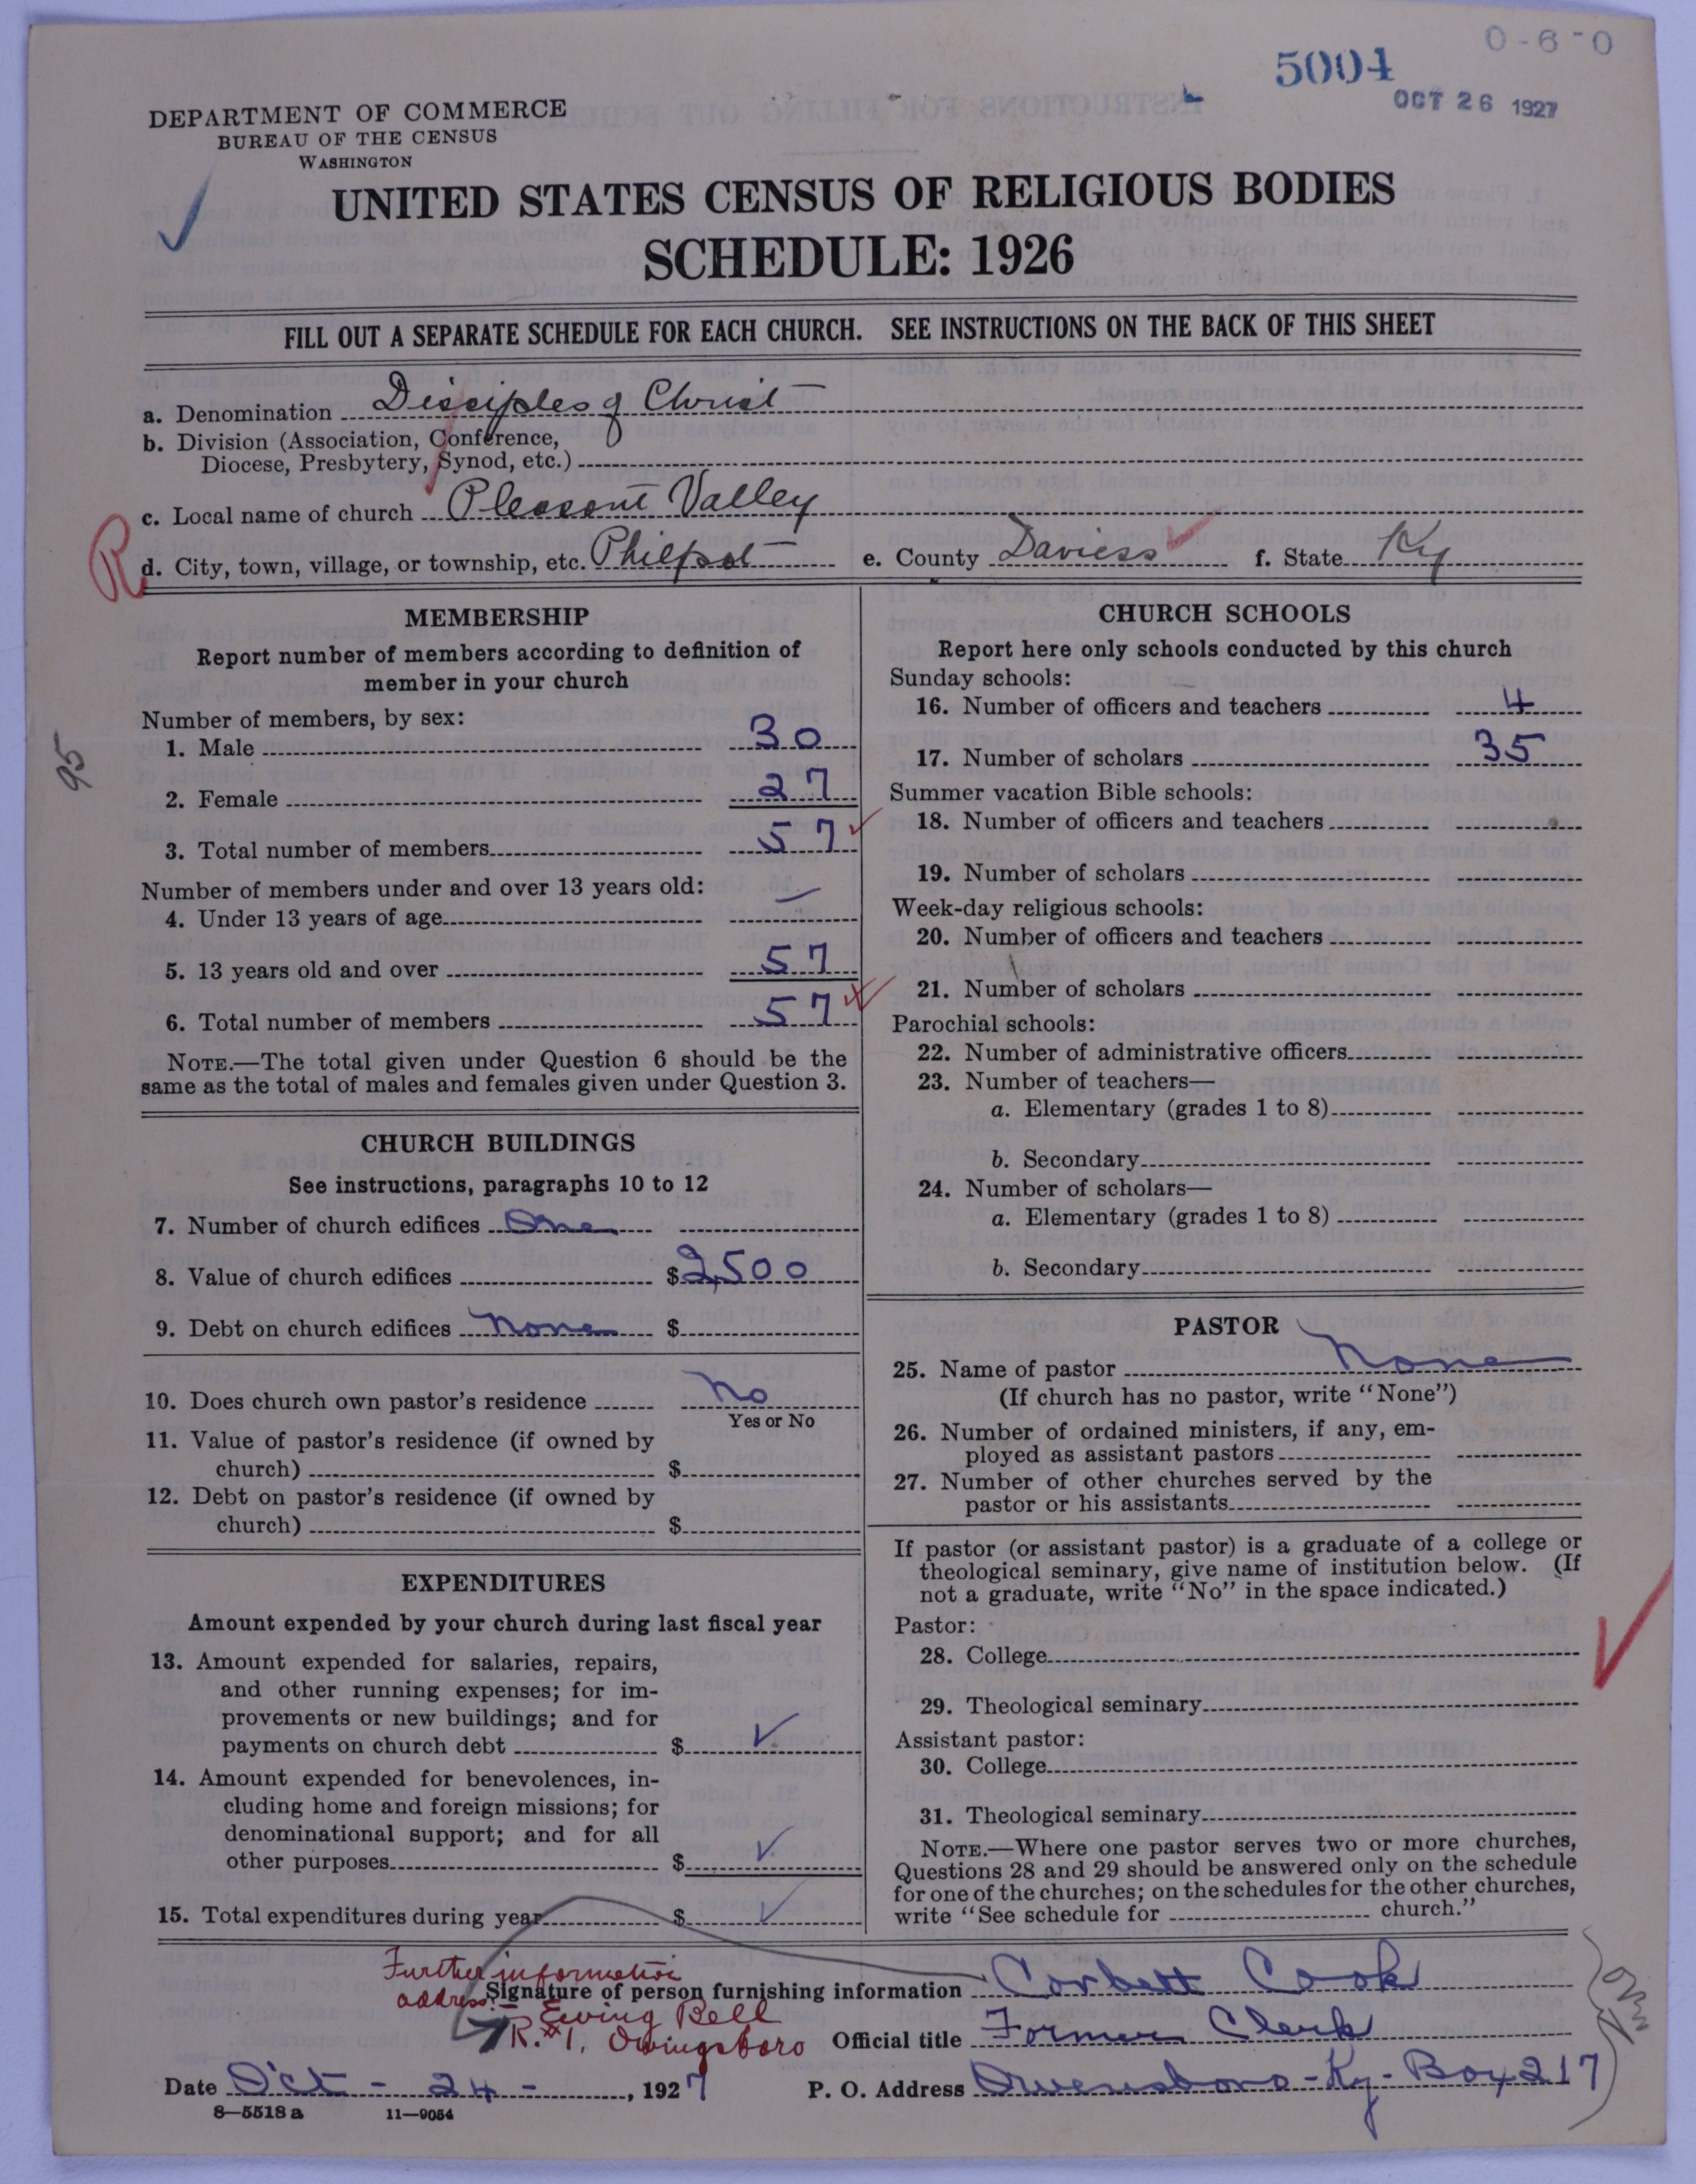 0-6-0
5004
OCT 26 1927
DEPARTMENT OF COMMERCE
BUREAU OF THE CENSUS
WASHINGTON
UNITED STATES CENSUS OF RELIGIOUS BODIES
SCHEDULE: 1926
FILL OUT A SEPARATE SCHEDULE FOR EACH CHURCH. SEE INSTRUCTIONS ON THE BACK OF THIS SHEET
a. Denomination Disciples of Christ
b. Division (Association, Conference,
Diocese, Presbytery, Synod, etc.)
c. Local name of church Pleasant Valley
R
d. City, town, village, or township, etc. Philpot e. County Daviess f. State Ky
MEMBERSHIP
Report number of members according to definition of
member in your church
Number of members, by sex:
1. Male 30
95
2. Female 27
3. Total number of members 57
Number of members under and over 13 years old:
4. Under 13 years of age —
5. 13 years old and over 57
6. Total number of members 57
NOTE.—The total given under Question 6 should be the
same as the total of males and females given under Question 3.
CHURCH BUILDINGS
See instructions, paragraphs 10 to 12
7. Number of church edifices One
8. Value of church edifices $2,500
9. Debt on church edifices None $
10. Does church own pastor's residence No
Yes or No
11. Value of pastor's residence (if owned by
church) $
12. Debt on pastor's residence (if owned by
church) $
EXPENDITURES
Amount expended by your church during last fiscal year
13. Amount expended for salaries, repairs,
and other running expenses; for im-
provements or new buildings; and for
payments on church debt $ ✓
14. Amount expended for benevolences, in-
cluding home and foreign missions; for
denominational support; and for all
other purposes $ ✓
15. Total expenditures during year $ ✓
CHURCH SCHOOLS
Report here only schools conducted by this church
Sunday schools:
16. Number of officers and teachers 4
17. Number of scholars 35
Summer vacation Bible schools:
18. Number of officers and teachers
19. Number of scholars
Week-day religious schools:
20. Number of officers and teachers
21. Number of scholars
Parochial schools:
22. Number of administrative officers
23. Number of teachers—
a. Elementary (grades 1 to 8)
b. Secondary
24. Number of scholars—
a. Elementary (grades 1 to 8)
b. Secondary
PASTOR
25. Name of pastor None
(If church has no pastor, write "None")
26. Number of ordained ministers, if any, em-
ployed as assistant pastors
27. Number of other churches served by the
pastor or his assistants
If pastor (or assistant pastor) is a graduate of a college or
theological seminary, give name of institution below. (If
not a graduate, write "No" in the space indicated.)
Pastor:
28. College
29. Theological seminary
Assistant pastor:
30. College
31. Theological seminary
NOTE.—Where one pastor serves two or more churches,
Questions 28 and 29 should be answered only on the schedule
for one of the churches; on the schedules for the other churches,
write "See schedule for church."
Further information
address:—
Ewing Bell
R.#1, Owingsboro
Signature of person furnishing information Corbett Cook
Official title Former Clerk
Date Oct - 24 - , 1927 P. O. Address Owensboro - Ky - Box 217
8—5518 a 11—9054